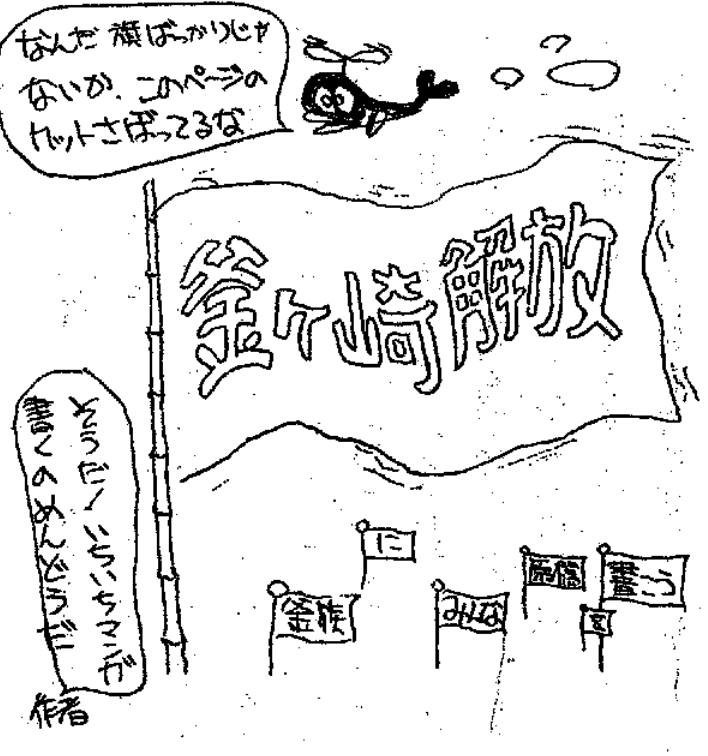 なんだ 旗ばっかりじゃ
ないか、このページの
カットさぼってるな
釜ヶ崎解放
そうだ!いちいちマンガ
書くのめんどうだ
作者
釜族
に
みんな
原稿
を
書こう